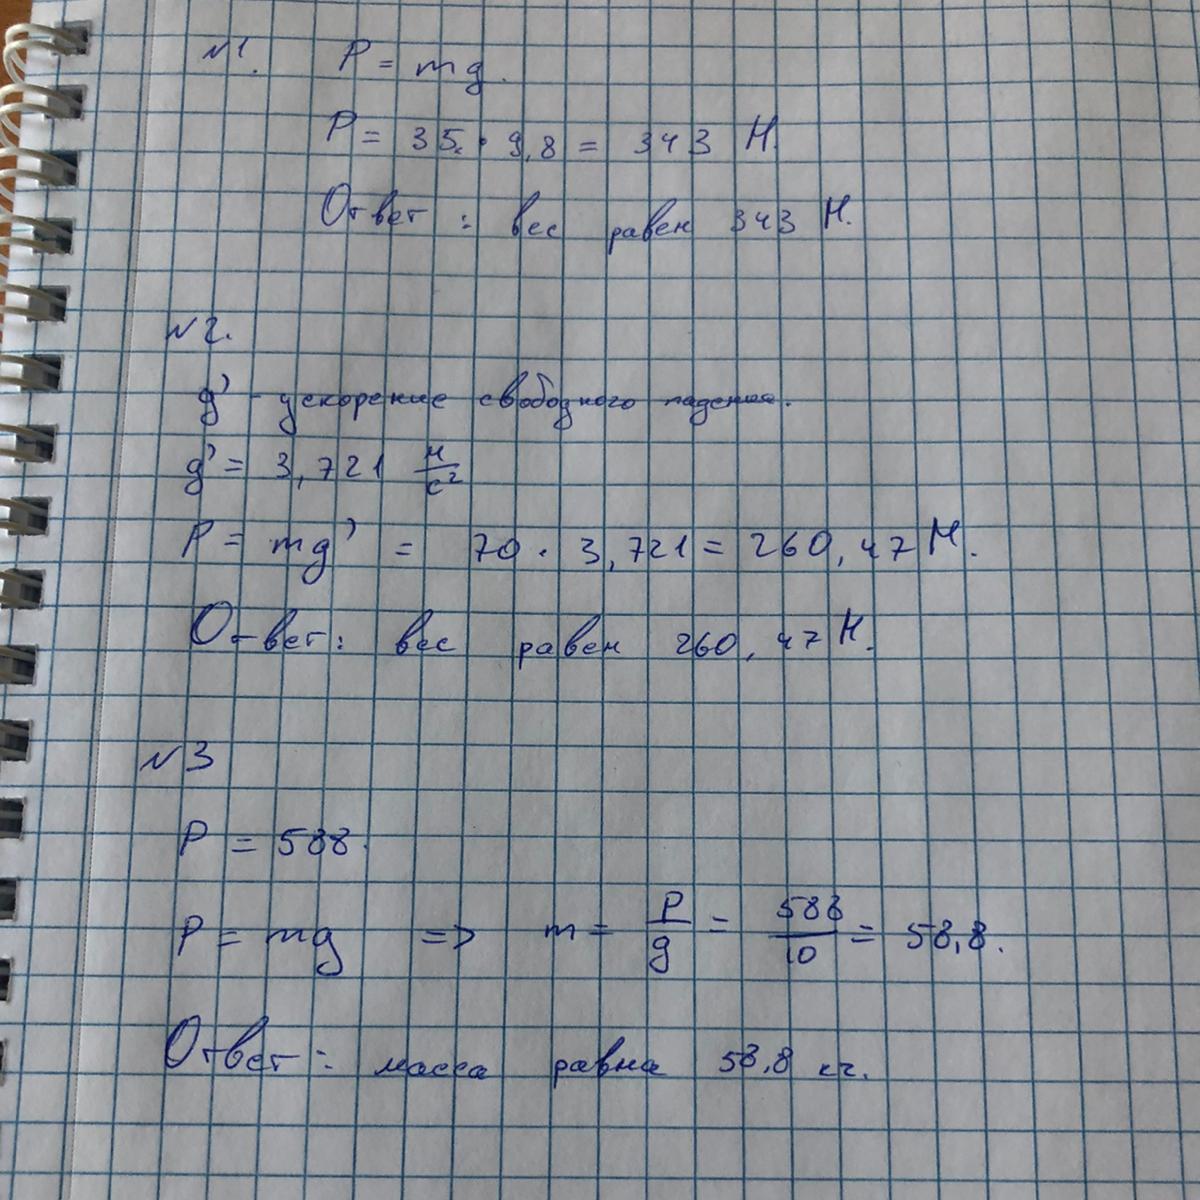 №1. P = mg.
P = 35 · 9,8 = 343 Н.
Ответ: вес равен 343 Н.
№2.
g' - ускорение свободного падения.
g' = 3,721 м/с²
P = mg' = 70 · 3,721 = 260,47 Н.
Ответ: вес равен 260,47 Н.
№3
P = 588.
P = mg => m = P/g = 588/10 = 58,8.
Ответ: масса равна 58,8 кг.